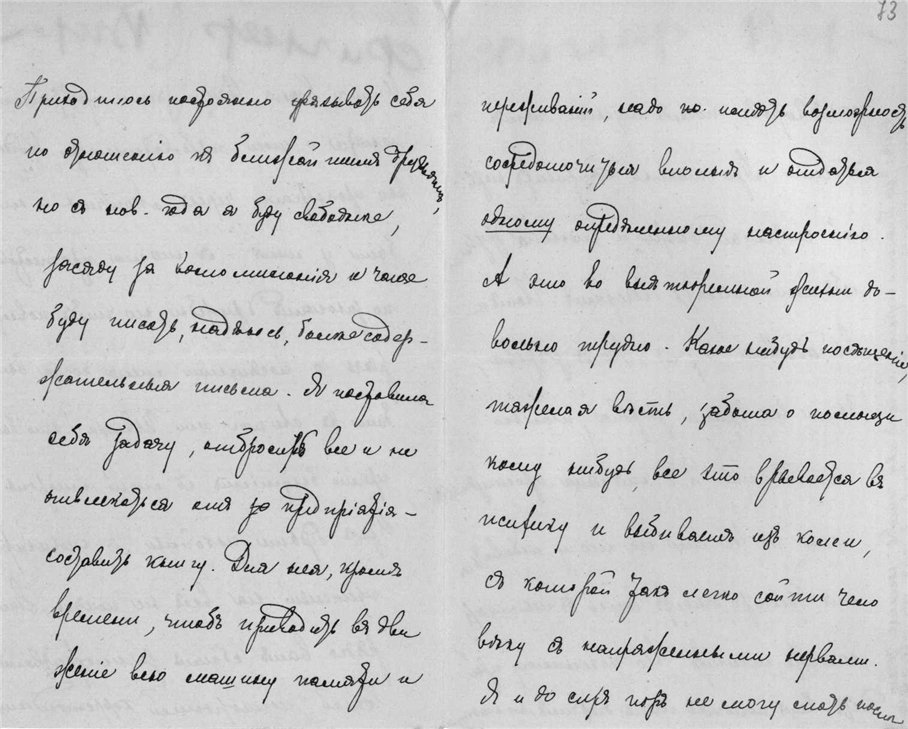 73
Приходилось постоянно урѣзывать себя
по отношенію къ большой темѣ
но съ нов. года я буду свободнѣе,
засяду за воспоминанія и чаще
буду писать, надѣюсь, болѣе содер-
жательныя письма. Я поставила
себѣ задачу, отбросить все и не
отвлекаться отъ предпріятія –
составить книгу. Для нея, кромѣ
времени, чтобъ приводить въ дви
женіе всю машину памяти и
переживаній, надо имѣть возможность
сосредоточиться вполнѣ и отдаться
одному опредѣленному настроенію.
А это во внѣтюремной жизни до-
вольно трудно. Какое нибудь посѣщеніе,
тяжелая вѣсть, забота о помощи
кому нибудь, все это врывается въ
психику и выбиваетъ изъ колеи,
съ которой такъ легко сойти чело
вѣку съ напряженными нервами.
Я и до сихъ поръ не могу спать послѣ